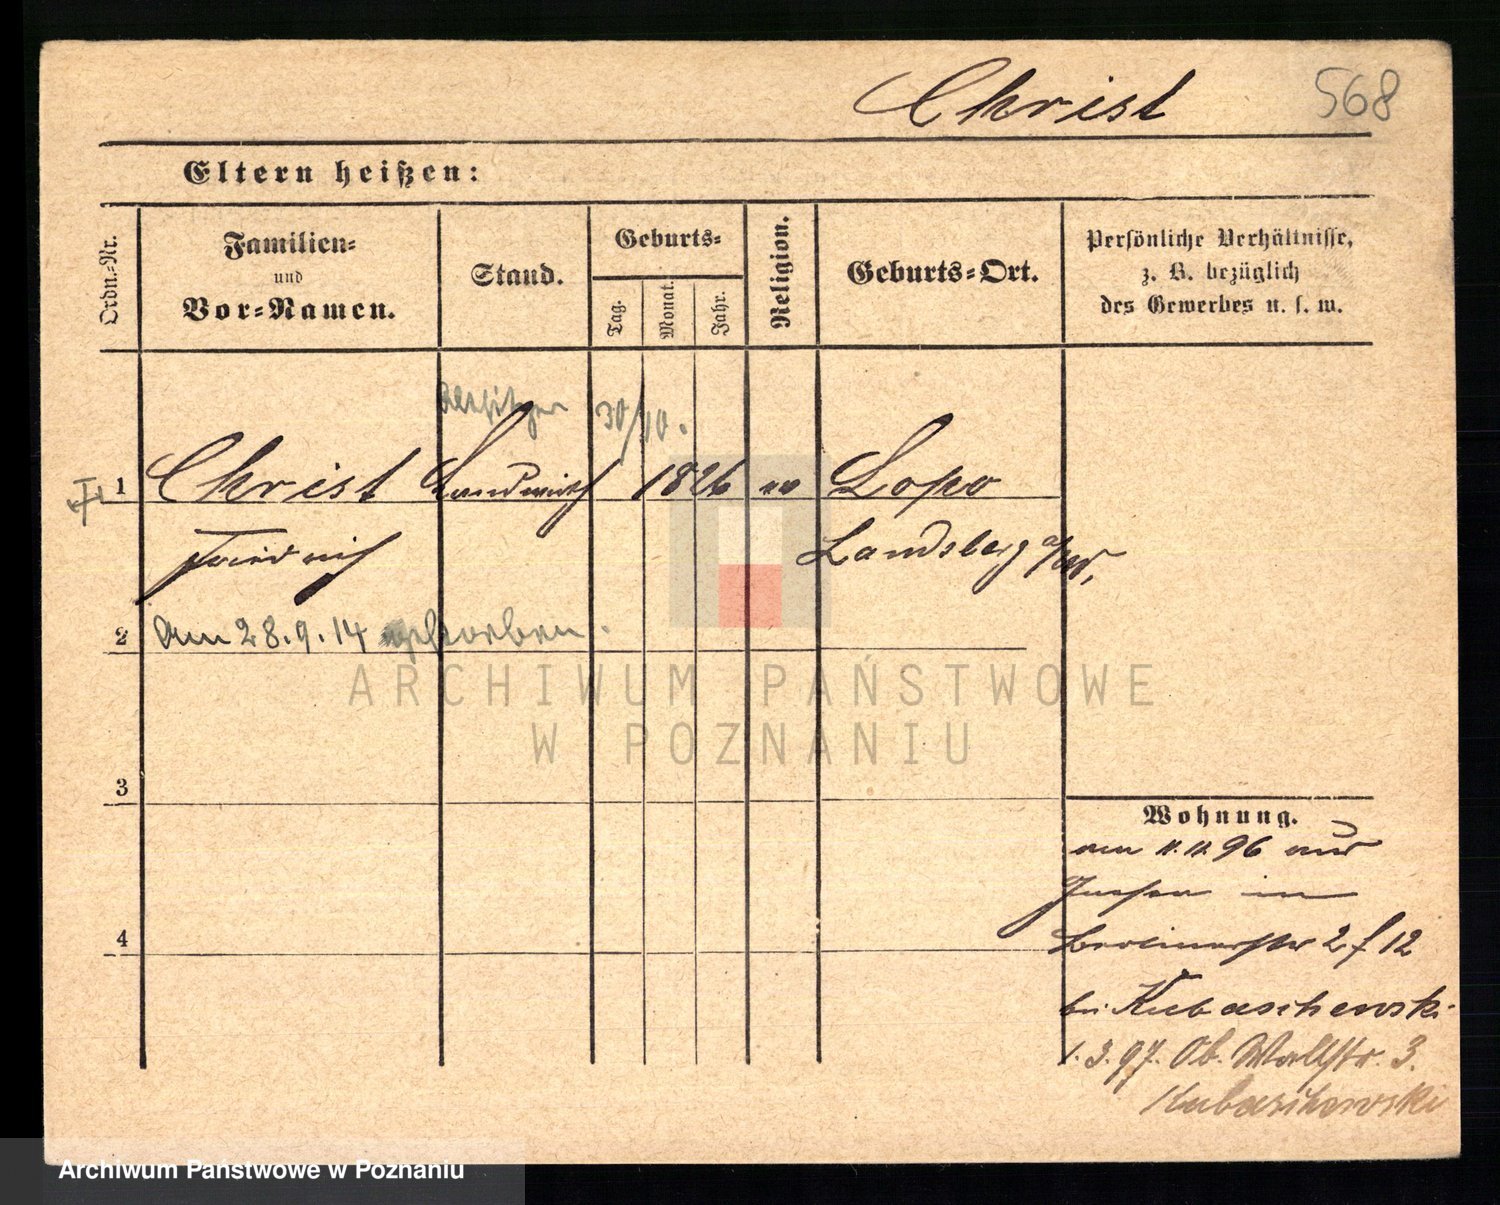 Christ 568
Eltern heißen:
Ordn.-Nr.
Familien-
und
Vor-Namen.
Stand.
Geburts-
Tag.
Monat.
Jahr.
Religion.
Geburts-Ort.
Persönliche Verhältnisse,
z. B. bezüglich
des Gewerbes u. s. w.
Altsitzer 30/10.
1 Christ Landwirth 1826 ev Lopo
Friedrich Landsberg a/W,
2 Am 28.9.14 gestorben.
3
4
Wohnung.
am 11.12 96 aus
in
Berlinerstr 2 f 12
bei Kubaschewski
1.3.97. Ob. Wallstr. 3.
Kubaschewski
ARCHIWUM PAŃSTWOWE
W POZNANIU
Archiwum Państwowe w Poznaniu